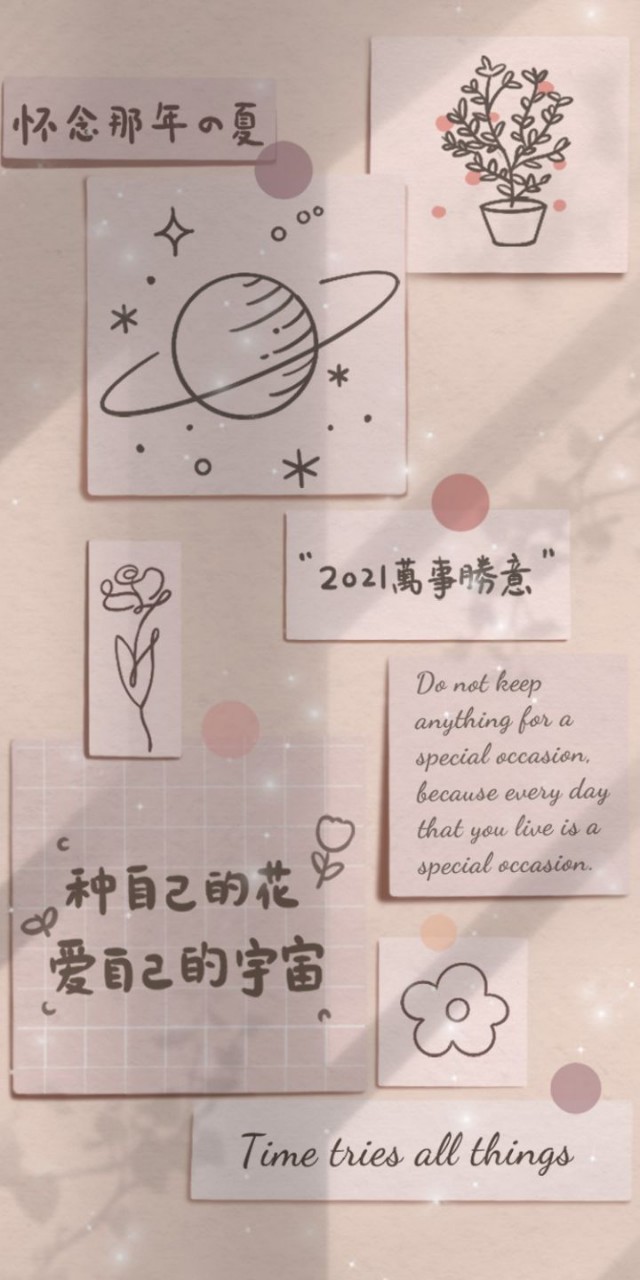 怀念那年の夏
"2021萬事勝意"
Do not keep
anything for a
special occasion,
because every day
that you live is a
special occasion.
种自己的花
爱自己的宇宙
Time tries all things